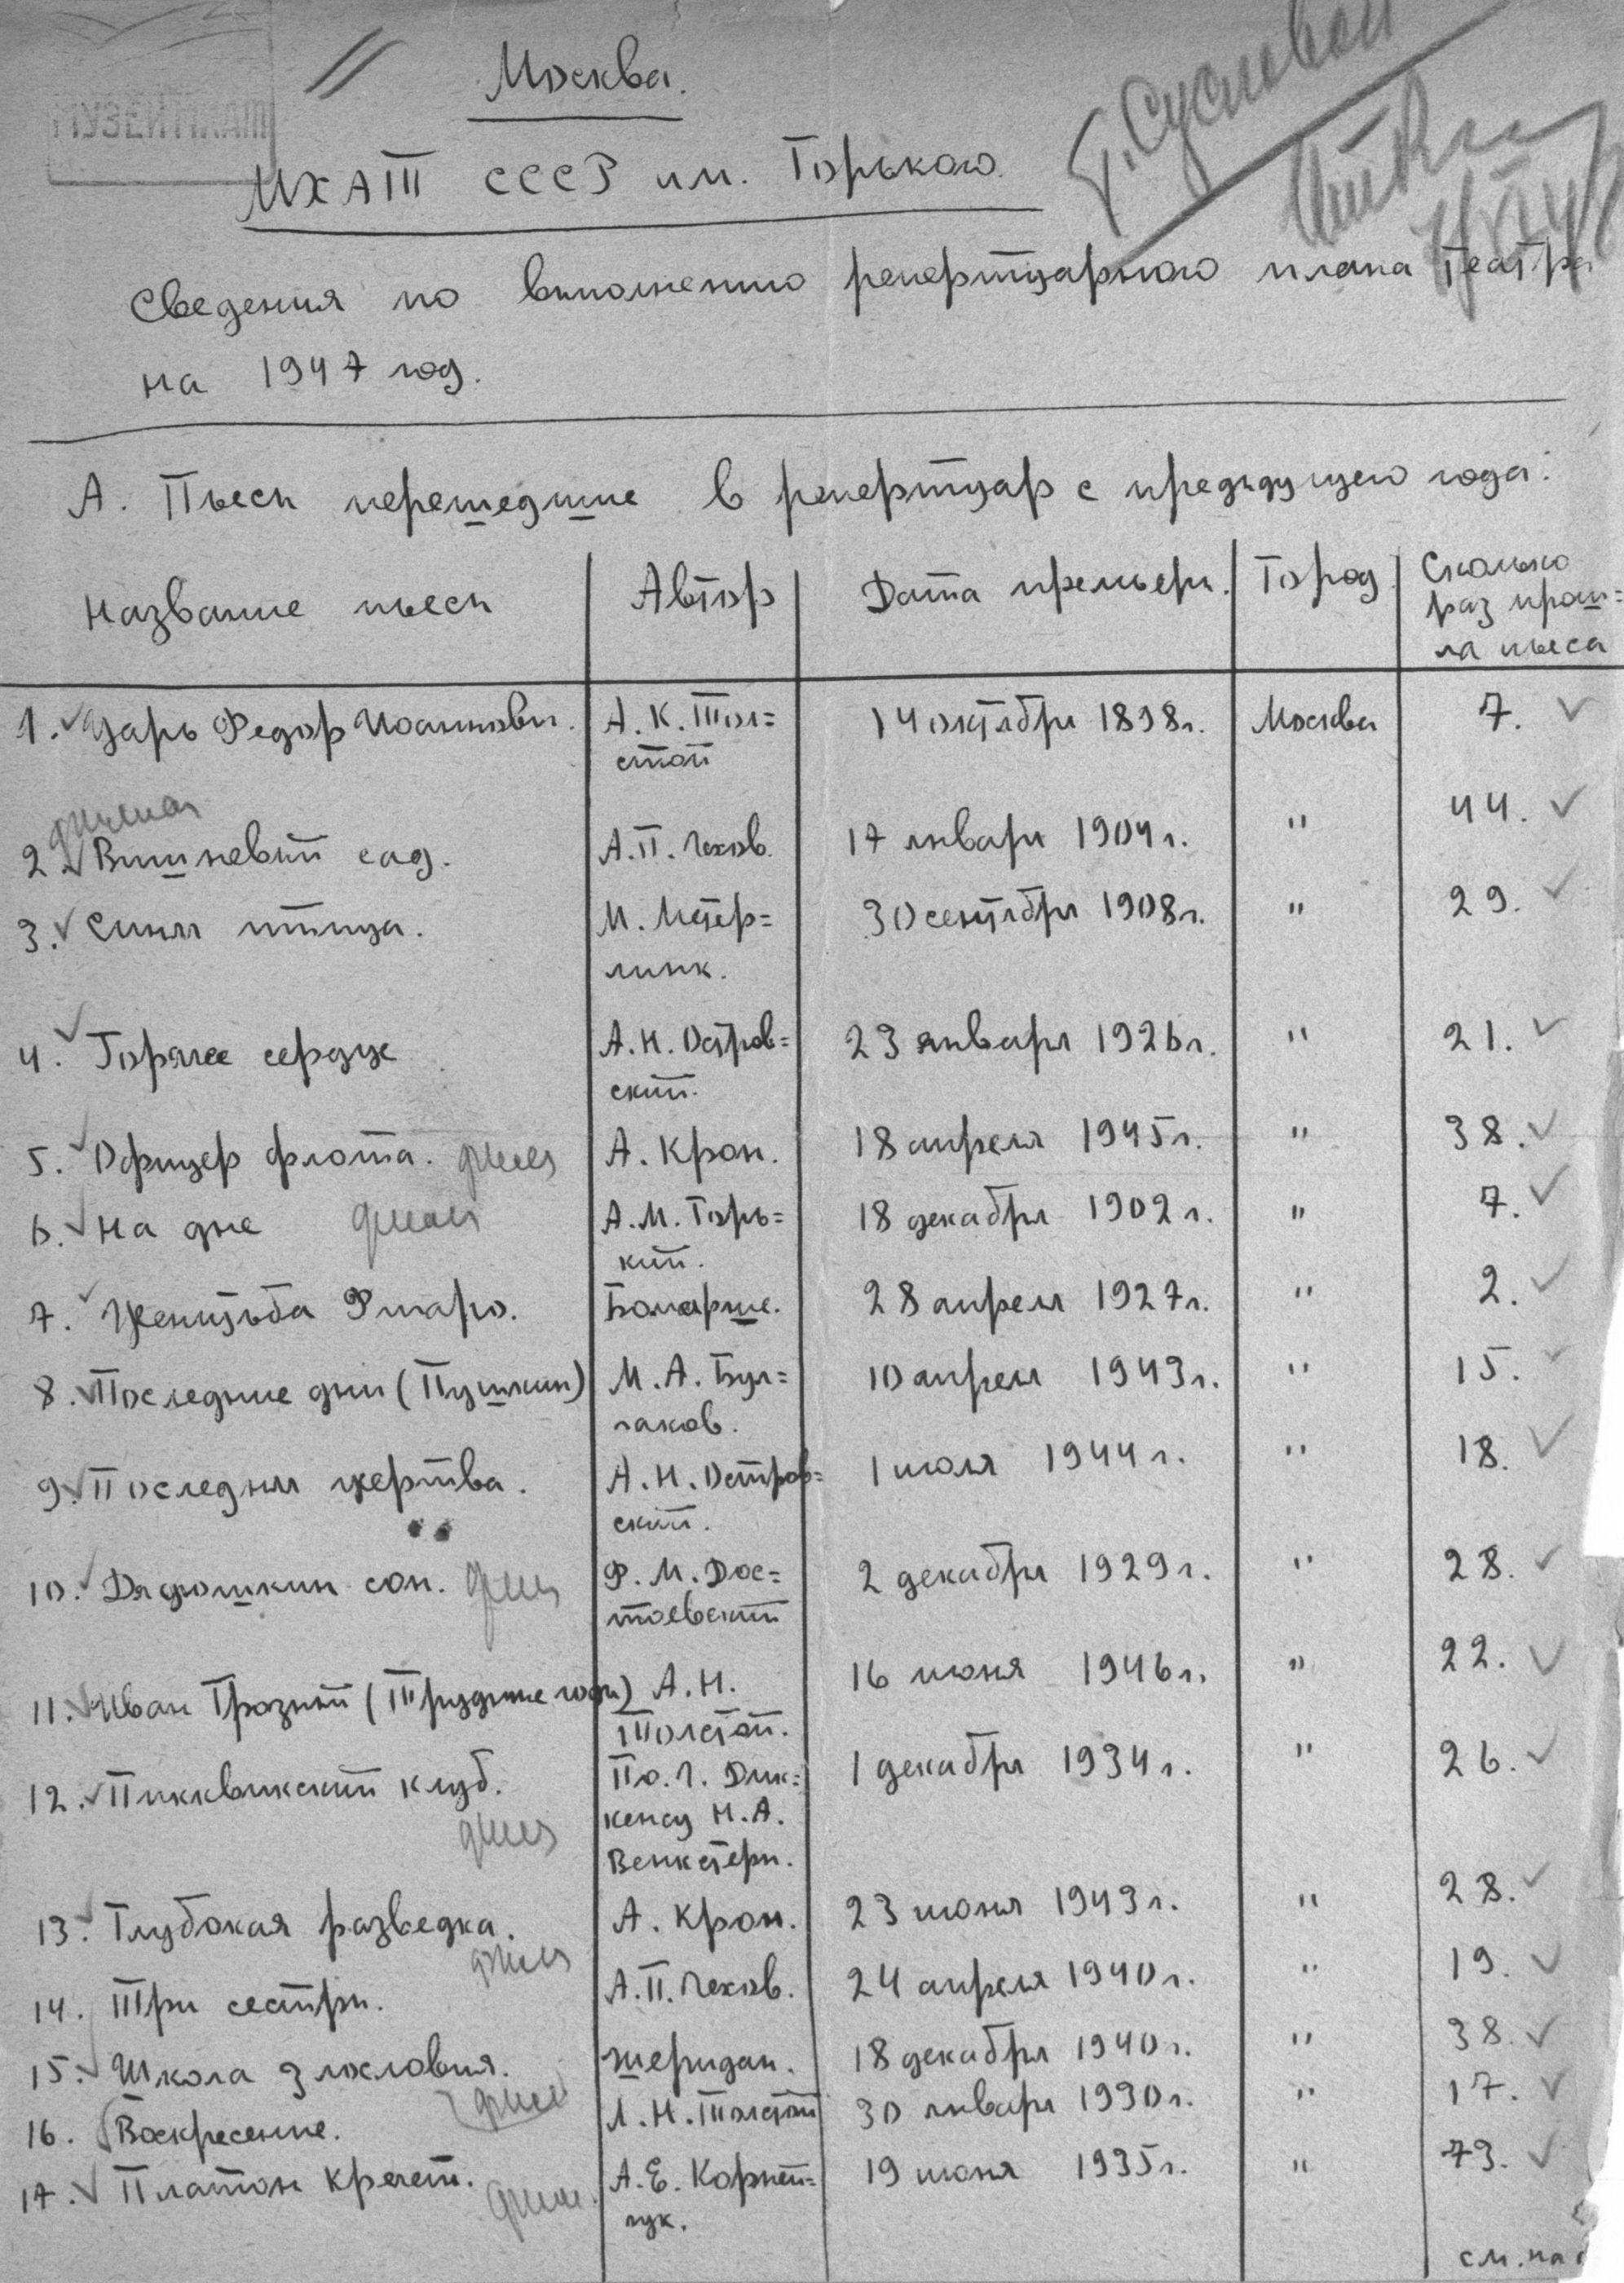 МУЗЕЙ МХАТ
Москва.
МХАТ СССР им. Горького.
Сведения по выполнению репертуарного плана Театра
на 1947 год.
А. Пьесы перешедшие в репертуар с предыдущего года:
Название пьесы | Автор | Дата премьеры. | Город | Сколько
раз прош=
ла пьеса
1. Царь Федор Иоаннович. | А. К. Тол= | 14 октября 1898г. | Москва | 7.
стой
2. Вишневый сад. | А.П. Чехов. | 17 января 1904г. | " | 44.
3. Синяя птица. | М. Метер= | 30 сентября 1908г. | " | 29.
линк.
4. Горячее сердце | А.Н. Остров= | 23 января 1926г. | " | 21.
ский.
5. Офицер флота. | А. Крон. | 18 апреля 1945г. | " | 38.
6. На дне | А.М. Горь= | 18 декабря 1902г. | " | 7.
кий.
7. Женитьба Фигаро. | Бомарше. | 28 апреля 1927г. | " | 2.
8. Последние дни (Пушкин) | М.А. Бул= | 10 апреля 1943г. | " | 15.
гаков.
9. Последняя жертва. | А.Н. Остров= | 1 июля 1944г. | " | 18.
ский.
10. Дядюшкин сон. | Ф. М. Дос= | 2 декабря 1929г. | " | 28.
тоевский
11. Иван Грозный (Трудные годы) | А.Н. | 16 июня 1946г. | " | 22.
Толстой.
12. Пикквикский клуб. | По Ч. Дик= | 1 декабря 1934г. | " | 26.
кенсу Н.А.
Венкстерн.
13. Глубокая разведка. | А. Крон. | 23 июня 1943г. | " | 28.
14. Три сестры. | А.П. Чехов. | 24 апреля 1940г. | " | 19.
15. Школа злословия. | Шеридан. | 18 декабря 1940г. | " | 38.
16. Воскресение. | Л.Н. Толстой | 30 января 1930г. | " | 17.
17. Платон Кречет. | А.Е. Корней= | 19 июня 1935г. | " | 73.
чук.
см. на